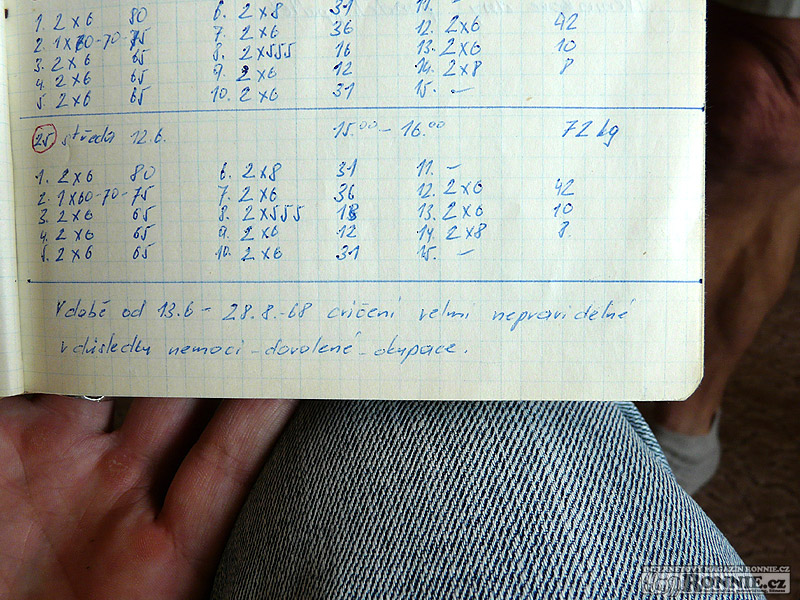 1. 2x6 80 6. 2x8 31 11. –
2. 1x60-70-75 7. 2x6 36 12. 2x6 42
3. 2x6 65 8. 2x555 16 13. 2x6 10
4. 2x6 65 9. 2x6 12 14. 2x8 8
5. 2x6 65 10. 2x6 31 15. –
25. středa 12.6. 15.00 – 16.00 72 kg
1. 2x6 80 6. 2x8 31 11. –
2. 1x60-70-75 7. 2x6 36 12. 2x6 42
3. 2x6 65 8. 2x555 18 13. 2x6 10
4. 2x6 65 9. 2x6 12 14. 2x8 8.
5. 2x6 65 10. 2x6 31 15. –
V době od 13.6 – 28.8.-68 cvičení velmi nepravidelné
v důsledky nemoci – dovolené – okupace.
INTERNETOVÝ MAGAZÍN RONNIE.CZ
RONNIE.cz